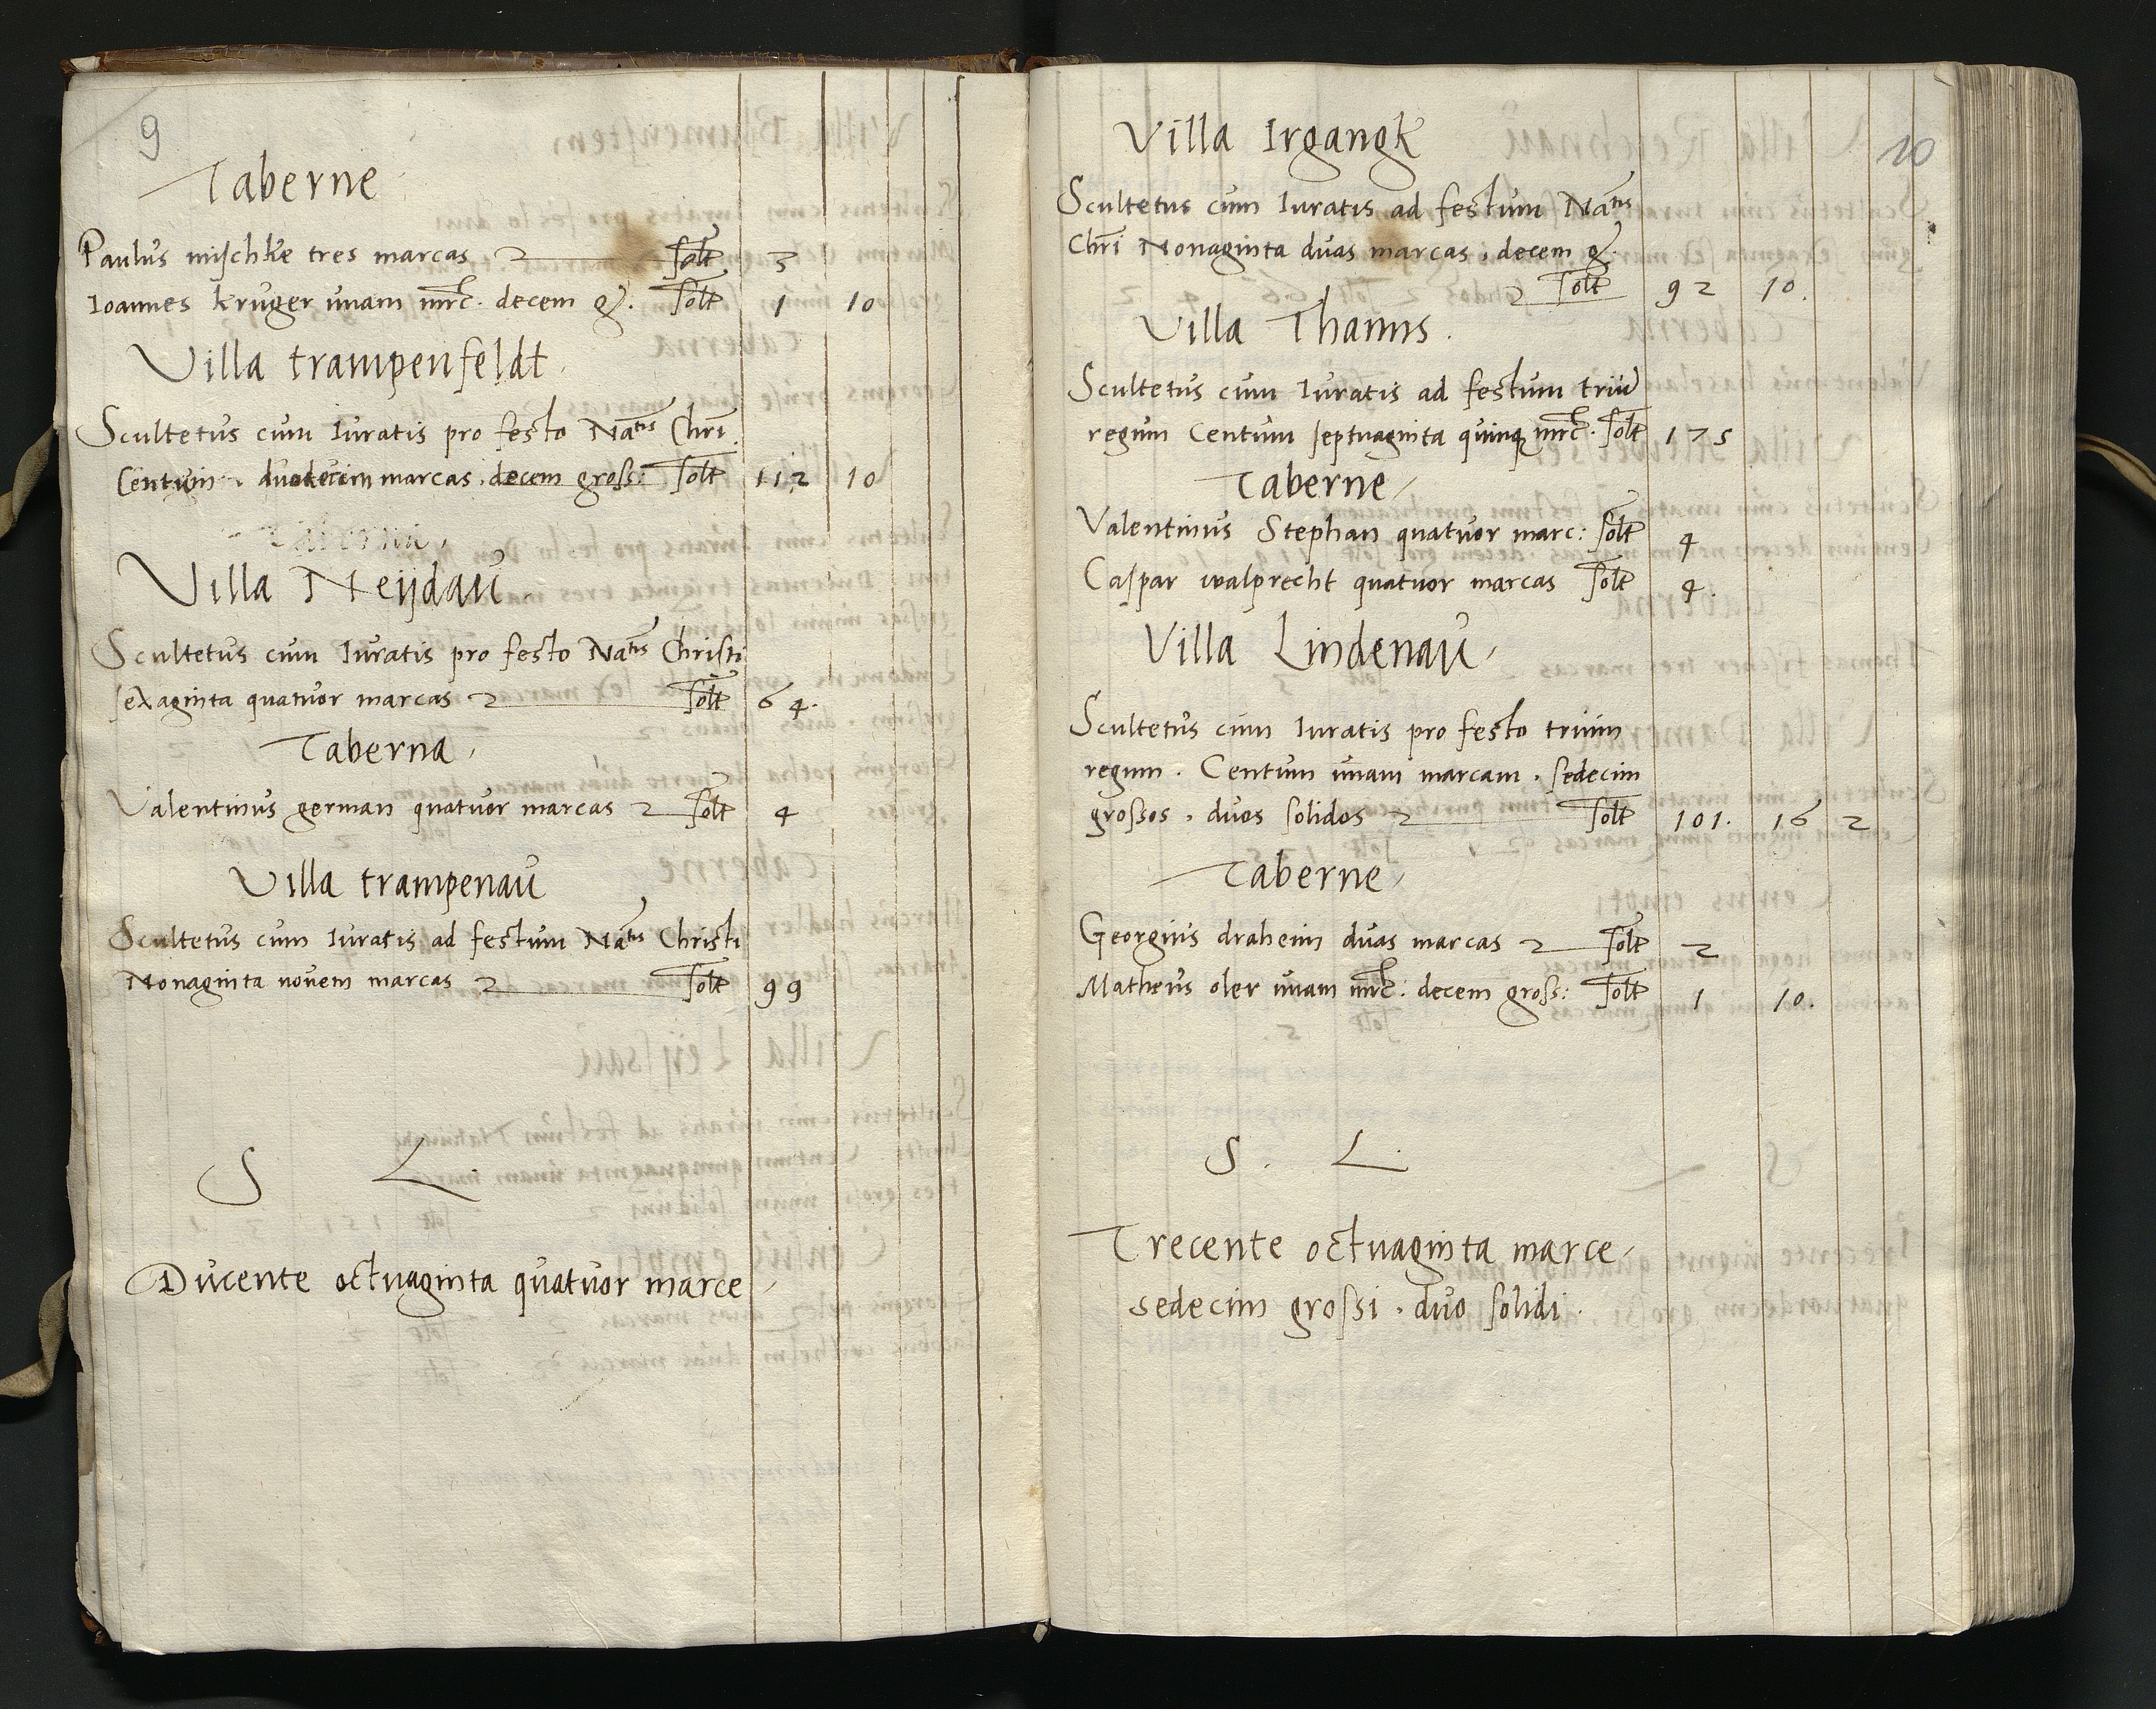 9
Taberne
Paulus mischke tres marcas solt 3
Ioannes kruger unam mrc. decem g. solt 1 10
Villa trampenfeldt.
Scultetus cum Iuratis pro festo Natis Chri.
Centum duodecim marcas. decem gross: solt 112 10
Villa Neÿdau.
Scultetus cum Iuratis pro festo Natis Christi
sexaginta quatuor marcas solt 64.
Taberna.
Valentinus german quatuor marcas solt 4
Villa trampenau
Scultetus cum Iuratis ad festum Natis Christi
Nonaginta novem marcas solt 99
S L
Ducente octuaginta quatuor marce
10
Villa Irgangk
Scultetus cum Iuratis ad festum Natis
Chri Nonaginta duas marcas. decem g.
solt 92 10.
Villa Thanns.
Scultetus cum Iuratis ad festum triu
regum Centum septuaginta quinq mrc. solt 175
Taberne
Valentinus Stephan quatuor marc: solt 4
Caspar walprecht quatuor marcas solt 4.
Villa Lindenau.
Scultetus cum Iuratis pro festo trium
regum. Centum unam marcam. sedecim
grossos. duos solidos solt 101. 16 2
Taberne
Georgius draheim duas marcas solt 2
Matheus oler unam mrc. decem gross: solt 1 10.
S. L.
Trecente octuaginta marce
sedecim grossi. duo solidi.